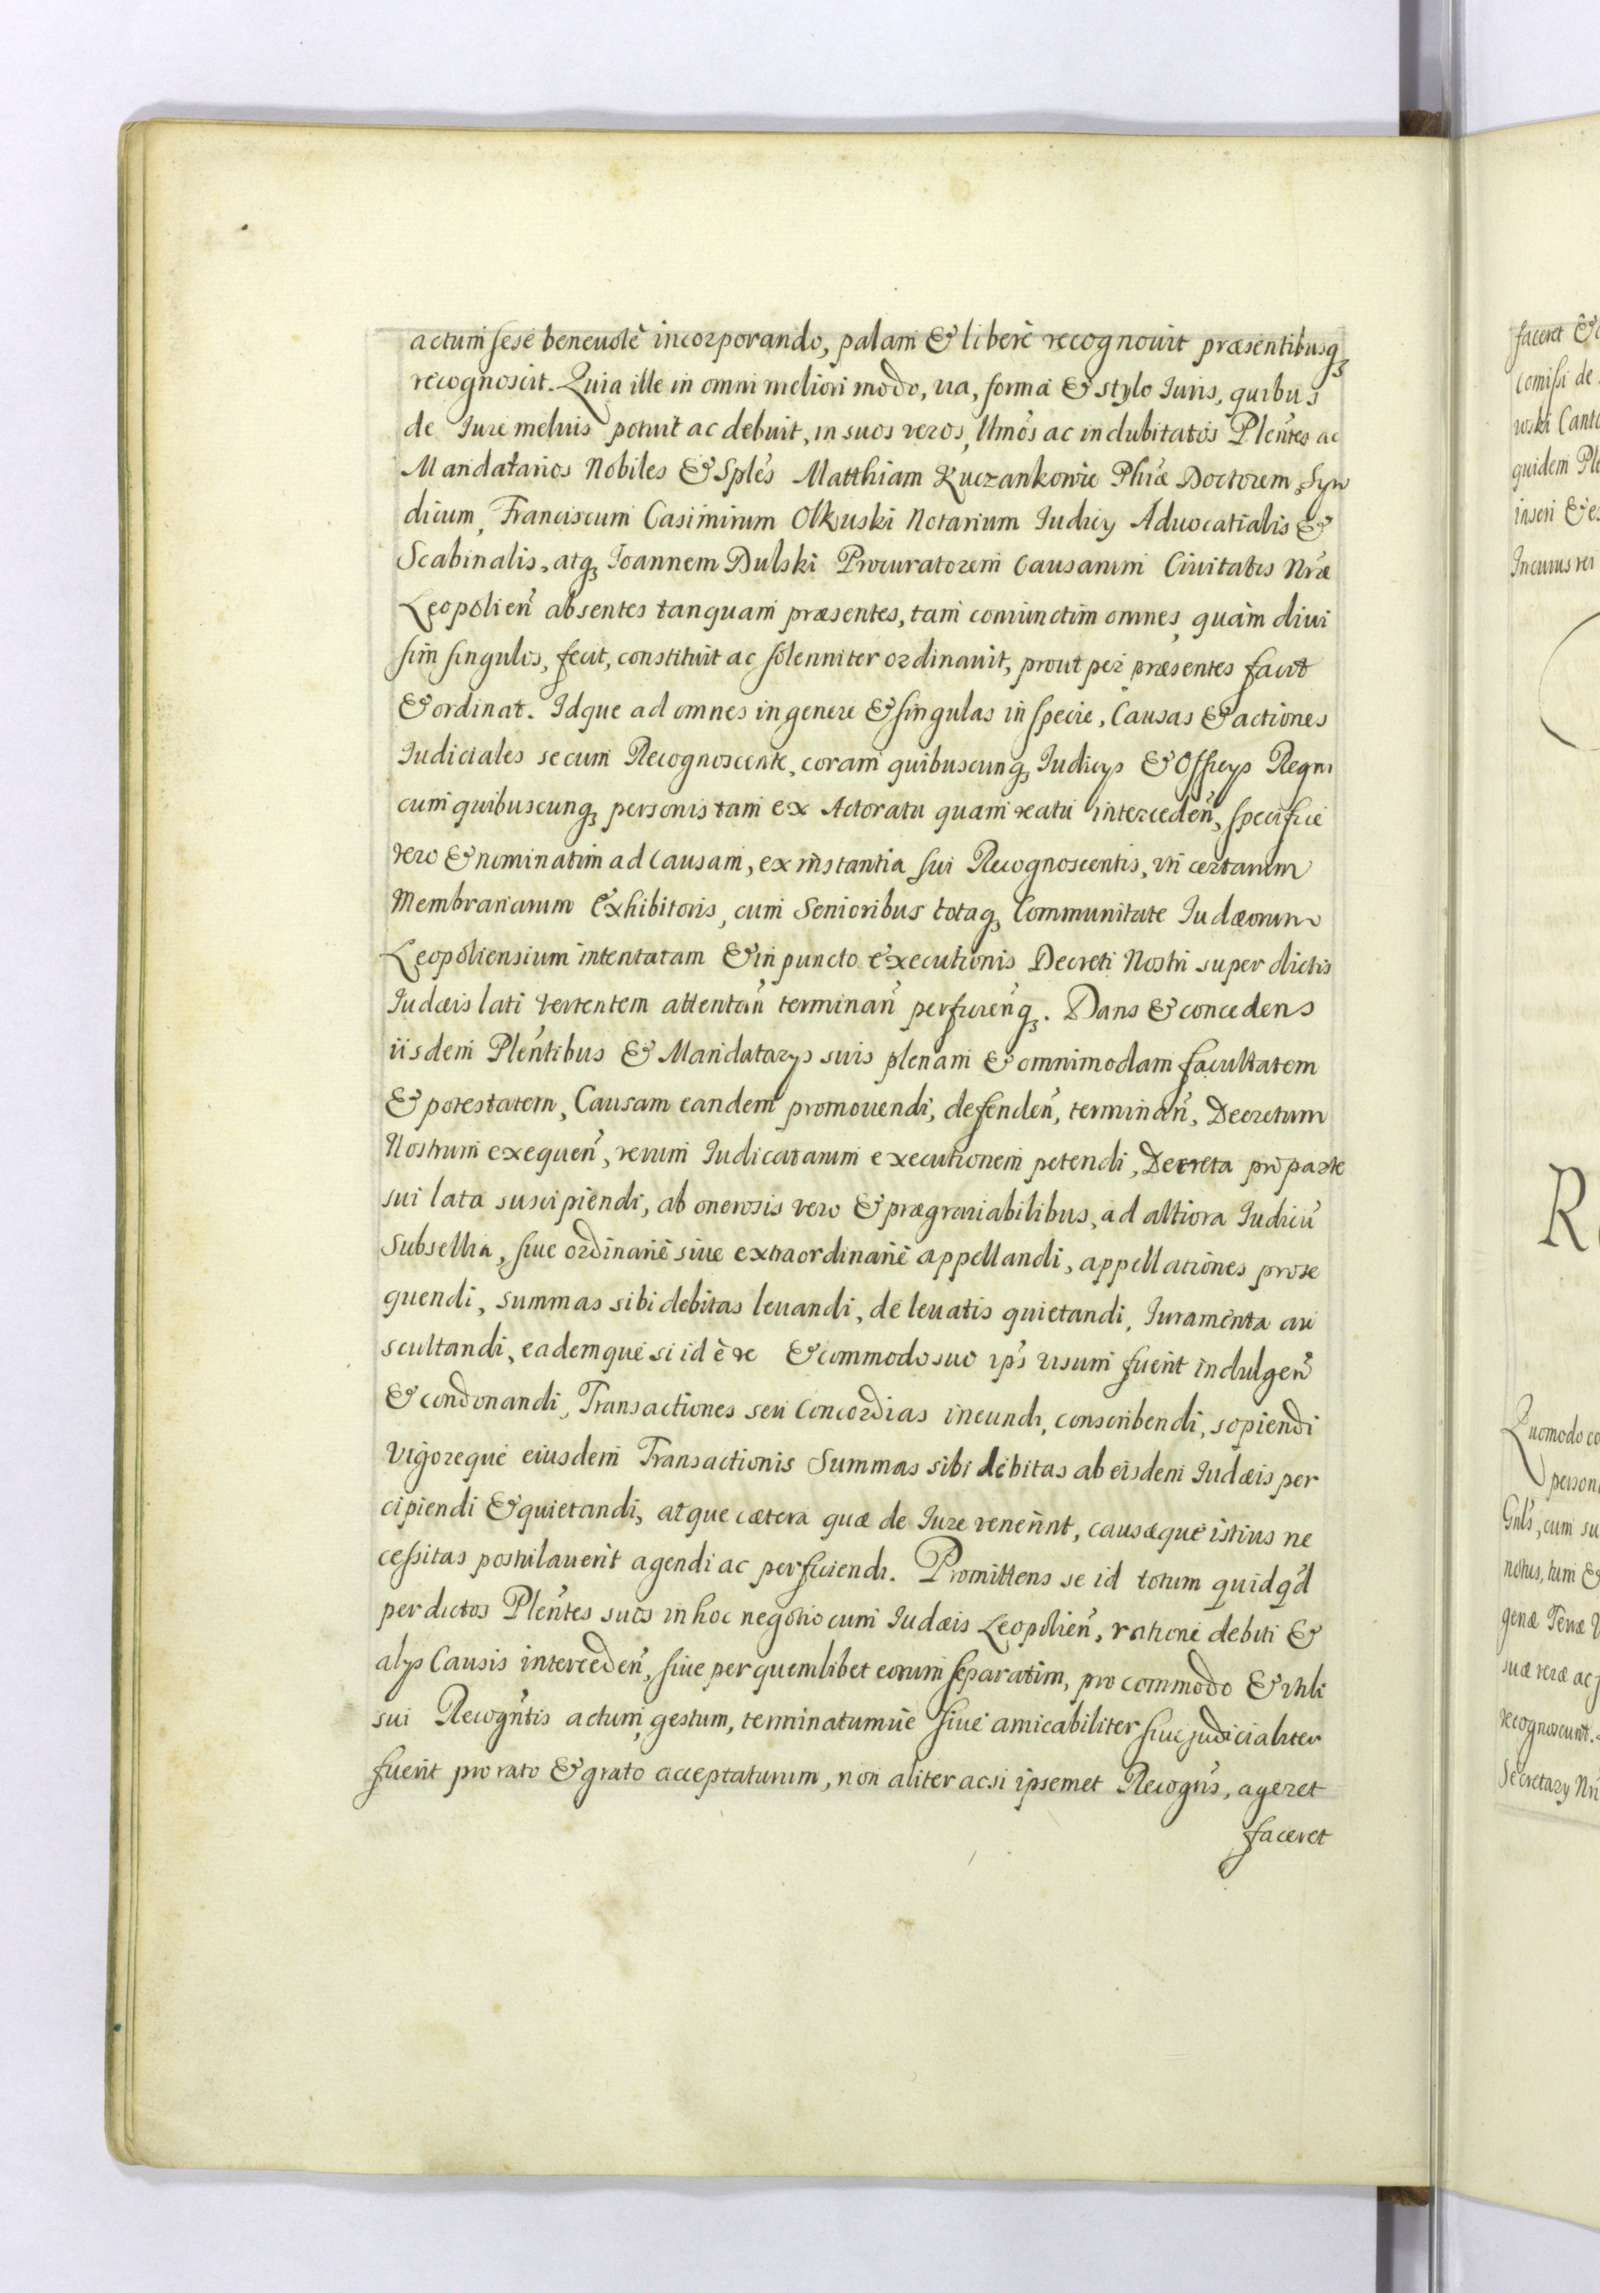 actum sese beneuolè incorporando, palam & liberè recognouit præsentibusq3
recognoscit. Quia ille in omni meliori modo, uia, forma & stylo Iuris, quibus
de Iure melius potuit ac debuit, in suos veros, Ltmos ac indubitatos Plen̄tes ac
Mandatarios Nobiles & Spl̄es Matthiam Kuczankowic Phiæ Doctorem, Syn
dicum, Franciscum Casimirum Olkuski Notarium Iudicÿ Aduocatialis &
Scabinalis, atq3 Ioannem Dulski Procuratorem Causarum Ciuitatis Nr̄æ
Leopolien̄ absentes tanquam præsentes, tam coniunctim omnes, quàm diui
sim singulos, fecit, constituit ac solenniter ordinauit, prout per præsentes facit
& ordinat. Idque ad omnes in genere & singulas in specie, Causas & actiones
Iudiciales secum Recognoscente, coram quibuscunq3 Iudicÿs & Officÿs Regni
cum quibuscunq3 personis tam ex Actoratu quam reatu interceden̄, specifice
vero & nominatim ad Causam, ex instantia sui Recognoscentis, uti certarum
Membranarum Exhibitoris, cum Senioribus totaq3 Communitate Iudæorum
Leopoliensium intentatam & in puncto executionis Decreti Nostri super dictis
Iudæis lati vertentem attentan̄ terminan̄ perficien̄q3. Dans & concedens
iisdem Plen̄tibus & Mandatarÿs suis plenam & omnimodam facultatem
& potestatem, Causam eandem promouendi, defenden̄, terminan̄, Decretum
Nostrum exequen̄, rerum Iudicatarum executionem petendi, Decreta pro parte
sui lata suscipiendi, ab onerosis vero & prægrauiabilibus, ad altiora Iudicū
Subsellia, siue ordinariè siue extraordinariè appellandi, appellationes prose
quendi, summas sibi debitas leuandi, de leuatis quietandi, Iuramenta au
scultandi, eademque si id è re & commodo suo ip̄s uisum fuerit indulgen̄
& condonandi, Transactiones seu Concordias ineundi, conscribendi, sopiendi
Vigoreque eiusdem Transactionis Summas sibi debitas ab eisdem Iudæis per
cipiendi & quietandi, atque cætera quæ de Iure venerint, causæque istius ne
cessitas postulauerit agendi ac perficiendi. Promittens se id totum quidq̄d
per dictos Plen̄tes suos in hoc negotio cum Iudæis Leopolien̄, ratione debiti &
alÿs Causis interceden̄, siue per quemlibet eorum separatim, pro commodo & utili
sui Recogn̄tis actum, gestum, terminatumue siue amicabiliter siue judicialiter
fuerit pro rato & grato accepturum, non aliter acsi ipsemet Recogn̄s, ageret
faceret